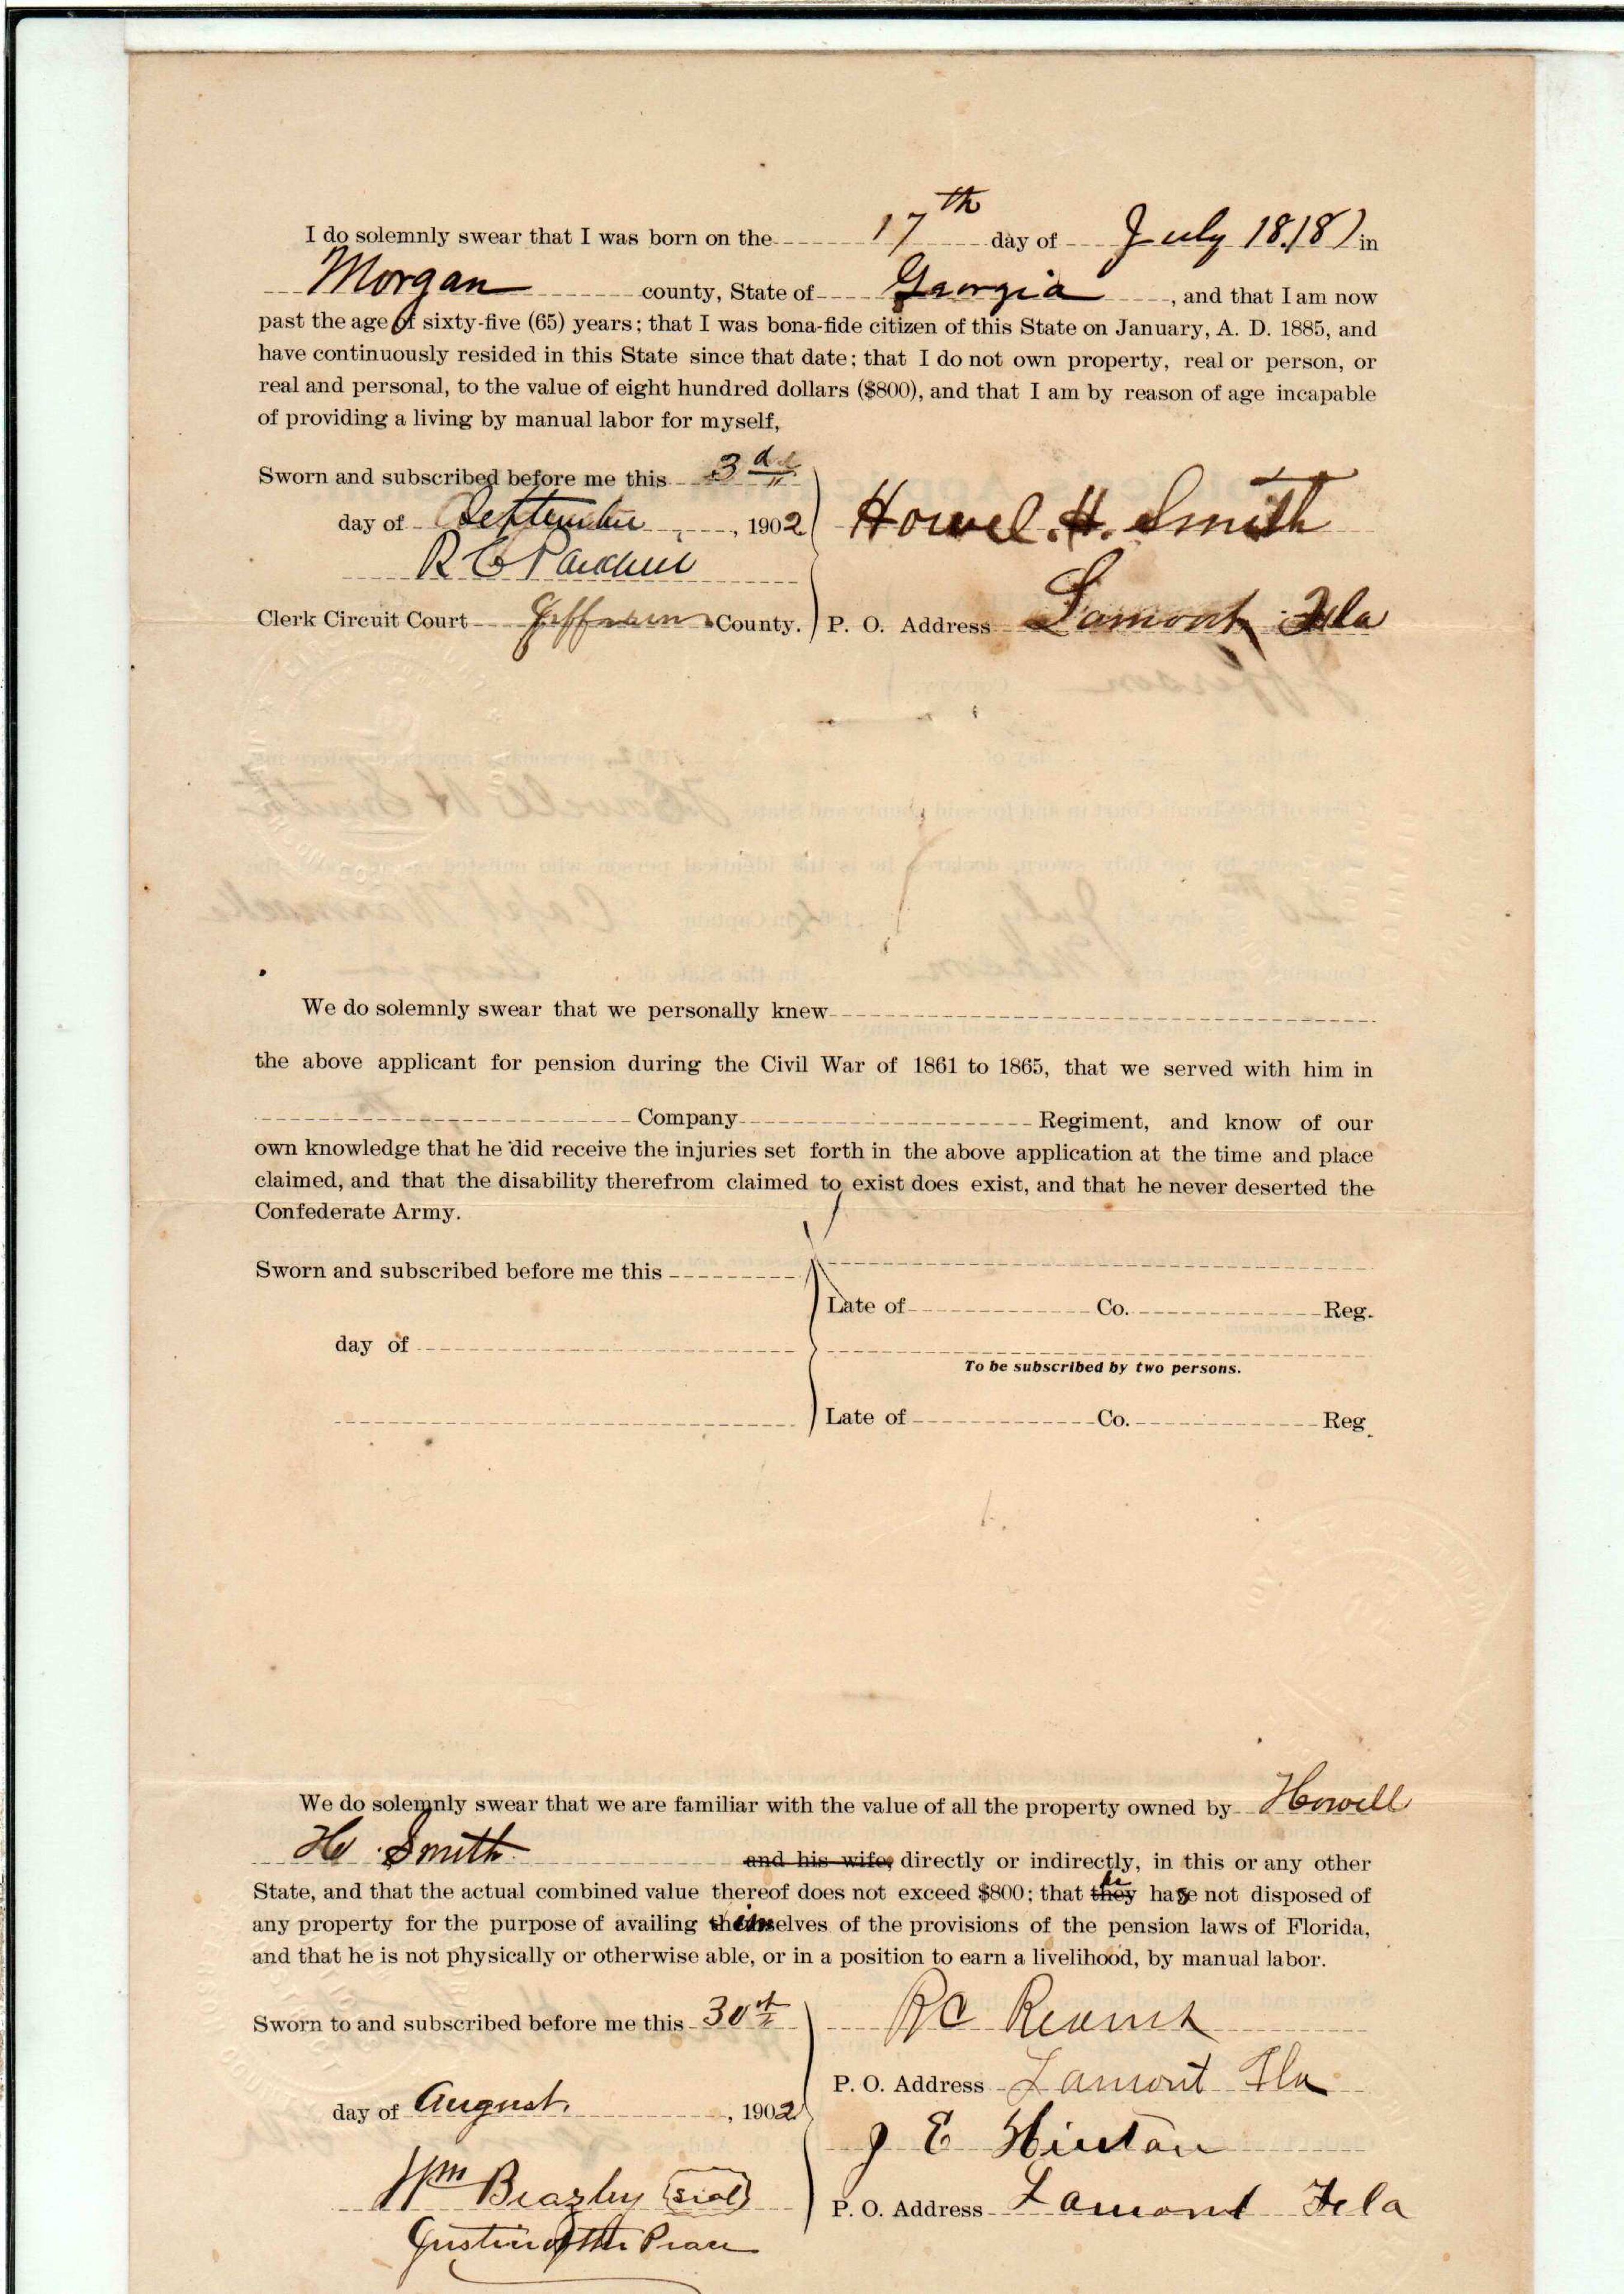 I do solemnly swear that I was born on the 17th day of July 1818 in
Morgan county, State of Georgia, and that I am now
past the age of sixty-five (65) years; that I was bona-fide citizen of this State on January, A. D. 1885, and
have continuously resided in this State since that date; that I do not own property, real or person, or
real and personal, to the value of eight hundred dollars ($800), and that I am by reason of age incapable
of providing a living by manual labor for myself,
Sworn and subscribed before me this 3d
day of September, 1902
Howel. H. Smith
R C
Clerk Circuit Court Jefferson County.
P. O. Address Lamont Fla
We do solemnly swear that we personally knew
the above applicant for pension during the Civil War of 1861 to 1865, that we served with him in
Company Regiment, and know of our
own knowledge that he did receive the injuries set forth in the above application at the time and place
claimed, and that the disability therefrom claimed to exist does exist, and that he never deserted the
Confederate Army.
Sworn and subscribed before me this
Late of Co. Reg.
day of
To be subscribed by two persons.
Late of Co. Reg.
We do solemnly swear that we are familiar with the value of all the property owned by Howell
H Smith and his wife, directly or indirectly, in this or any other
State, and that the actual combined value thereof does not exceed $800; that they he has not disposed of
any property for the purpose of availing themselves of the provisions of the pension laws of Florida,
and that he is not physically or otherwise able, or in a position to earn a livelihood, by manual labor.
Sworn to and subscribed before me this 30th
R C Reams
P. O. Address Lamont Fla
day of August, 1902
J E Hinton
Wm Beazley (seal)
P. O. Address Lamont Fla
Justice of the Peace